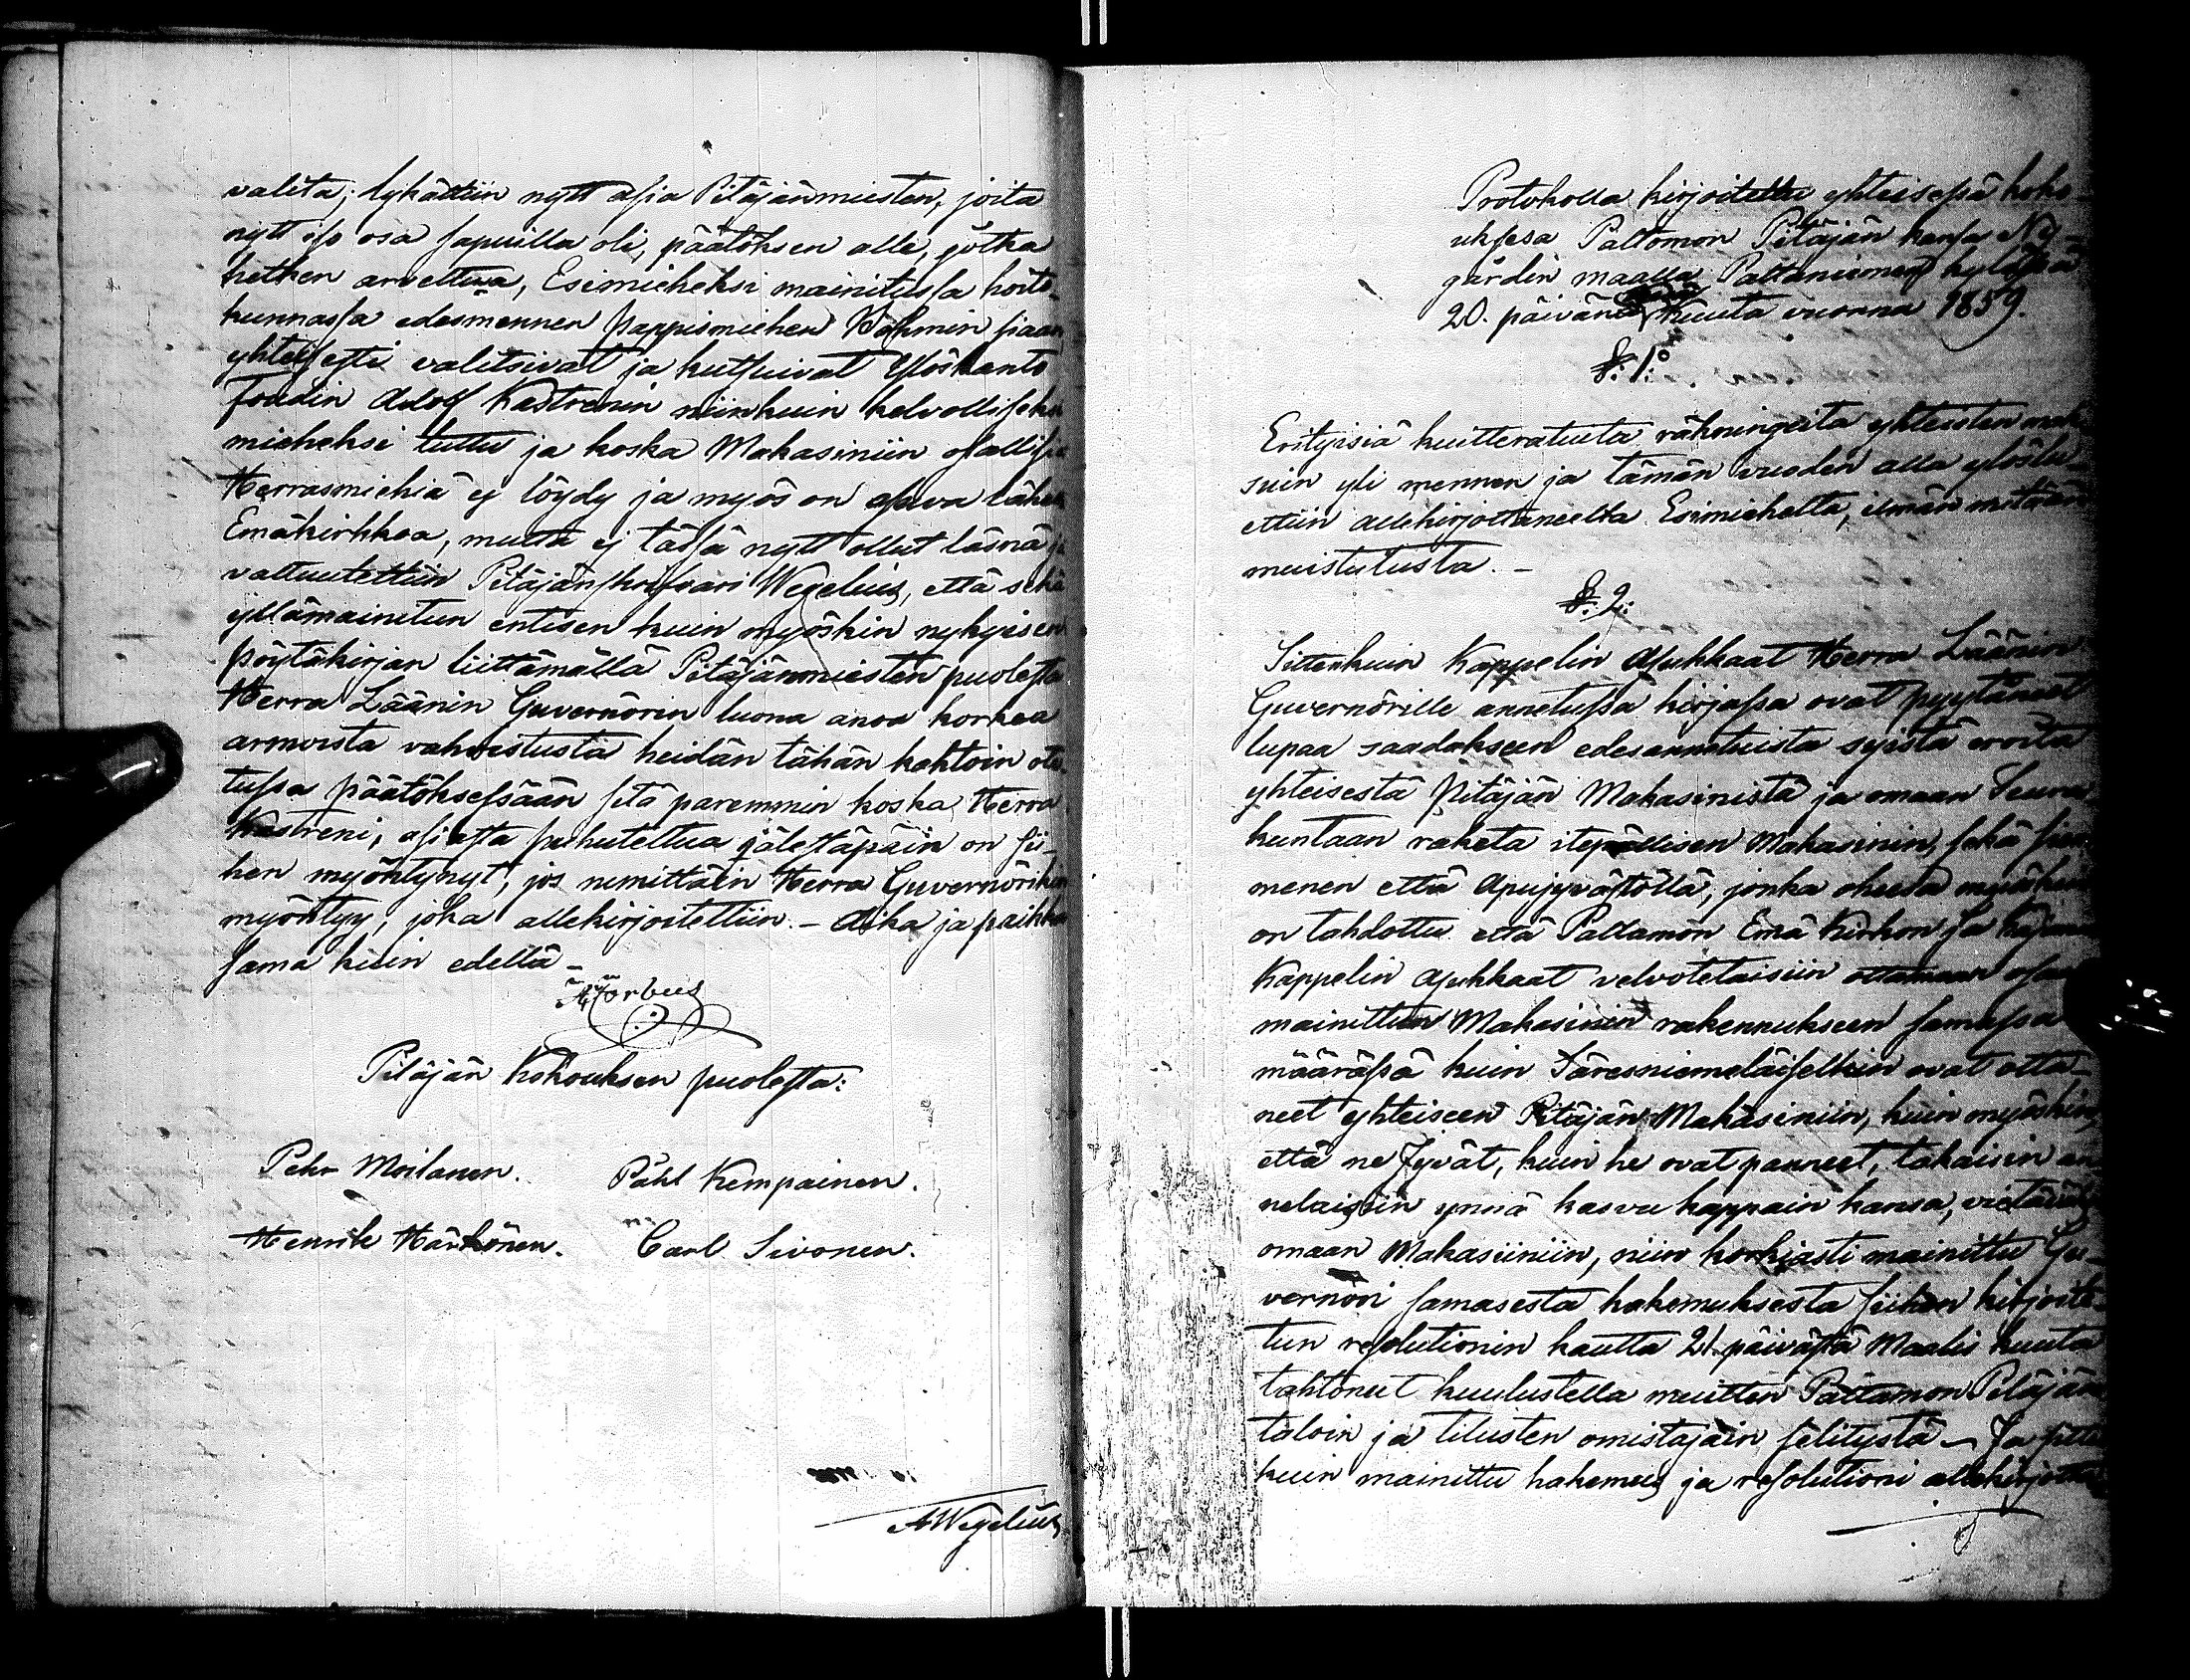 valita; lykättiin nytt asia Pitäjänmiesten, joita
nytt iso osa sapuilla oli, päätöksen alle, jotka
hetken arveltuva, Esimieheksi mainitussa hoito-
kunnassa edesmennen pappismiehen Hohmin siaan
yhteisesti valitsivat ja kutsuivat Ylöskanto
foudin Adolf Kastrenin niinkuin kelvolliseksi
mieheksi tuttu ja koska Makasiniin osallisia
Herrasmiehiä ej löydy ja myös on asuva lähellä
Emäkirkkoa, mutta ej tässä nytt ollut läsnä ja
valtuutettiin Pitäjänskrifvari Wegelius, että sekä
yllämainitun entisen kuin myöskin nykyisen
pöytäkirjan liittämällä Pitäjänmiesten puolesta
Herra Läänin Guvernörin luona anoa korkea
armoista vahvistusta heidän tähän kohtoin ote-
tussa päätöksessään sitä paremmin koska Herra
Kastreni, asiasta puhuteltua jälestäpäin on sii-
hen myöntynyt, jos nimittäin Herra Guvernörikin
myöntyy, joka allekirjoitettiin. - Aika ja paikka
sama kuin edellä -
Pitäjän Kokouksen puolesta:
Pehr Moilanen. Påhl Kempainen.
Henrik Härkönen. Carl Sivonen.
AWegelius
Protokolla kirjoitettu yhteisessä koko-
uksesa Paltomon Pitäjän kansa Ny-
gårdin maalla Paltaniemen kylässä
20. päivänä kuuta vuonna 1859.
§. 1o
Erityisiä kuitteratuita räkningeita yhteisten mak-
suin yli mennen ja tämän vuoden alla ylöslu-
ettiin allekirjottaneelta Esimieheltä, ilman mitään
muistutusta. -
§. 2:
Sittenkuin Kappelin Asukkaat Herra Läänin
Guvernörille annetussa kirjassa ovat pyytäneet
lupaa saadakseen edesannetuista syistä eroita
yhteisestä Pitäjän Makasinista ja omaan Seura-
kuntaan raketa itepällisen Makasinin, sekä sie-
menen että Apujyvästöllä, jonka ohessa myöskin
on tahdottu että Paltamon Emä Kirkon ja Kajanan
Kappelin Asukkaat velvotetaisiin ottamaan osaa
mainittuun Makasinin rakennukseen samassa
määrässä kuin Säresniemeläisetkin ovat otta-
neet yhteiseen Pitäjän Makasiniin, kuin myöskin,
että ne Jyvät, kuin he ovat panneet, takaisin an-
nelaisiin ynnä kasvu kappain kansa, vietäväksi
omaan Makasiiniin, niin korkiasti mainittu Gu-
vernööri samasesta hakemuksesta siihen kirjoite-
tun resolutionin kautta 21. päivästä Maalis kuuta
tahtonut kuulustella muitten Paltamon Pitäjän
taloin ja tilusten omistajain selitystä - Ja sitten
kuin mainittu hakemus ja resolutioni allekirjotta-